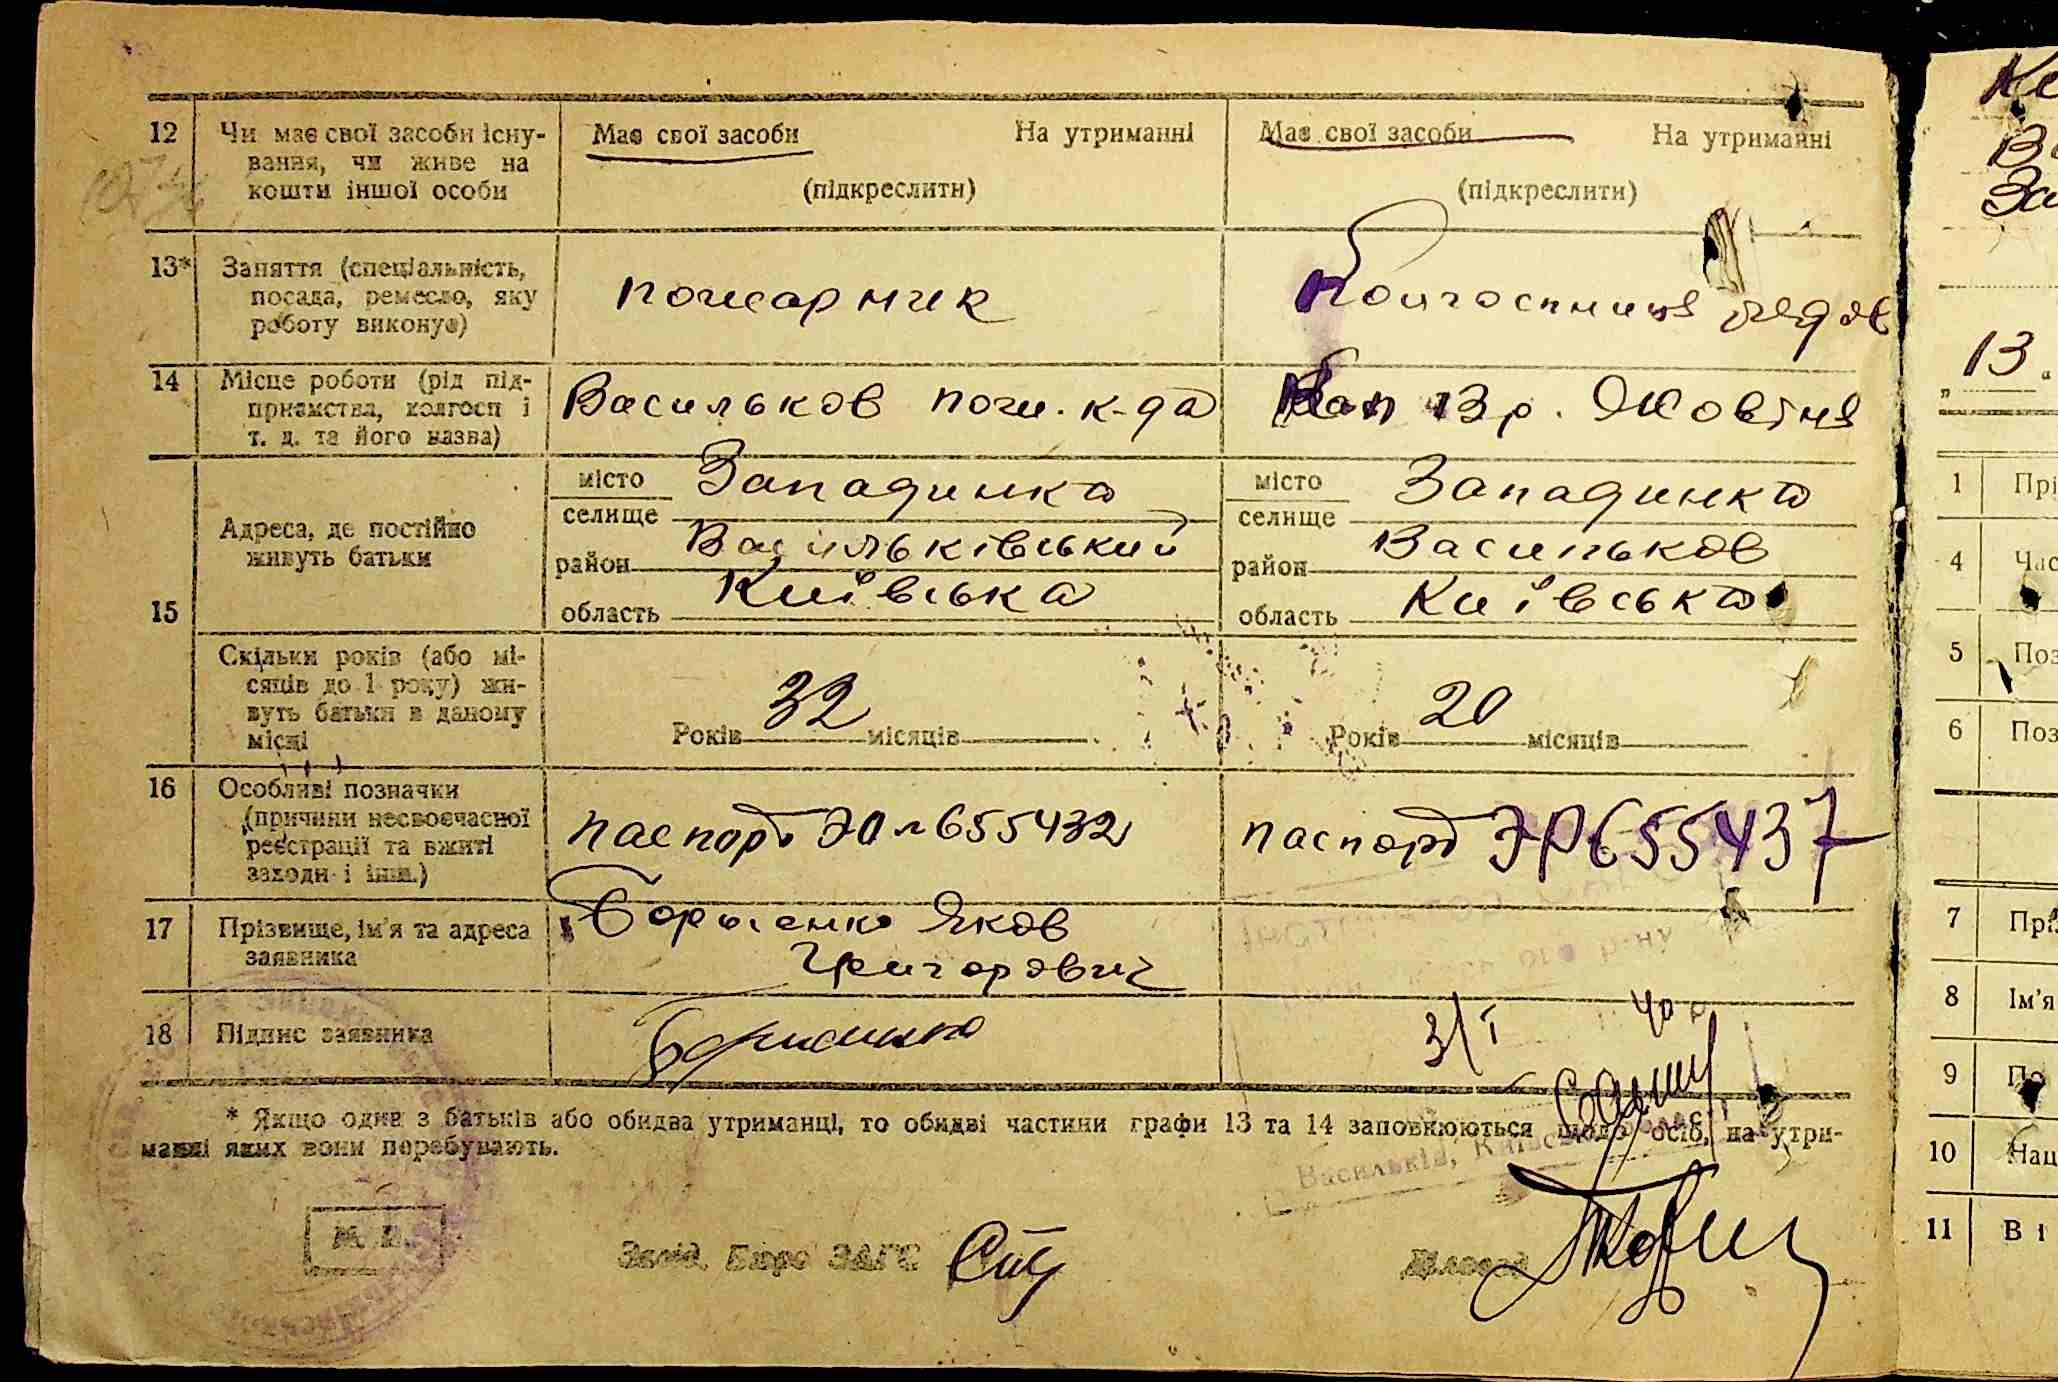 12 Чи має свої засоби існу-
вання, чи живе на
кошти іншої особи
Має свої засоби На утриманні
(підкреслити)
Має свої засоби На утриманні
(підкреслити)
13* Заняття (спеціальність,
посада, ремесло, яку
роботу виконує)
пожарник
Колгоспниця рядов
14 Місце роботи (рід під-
приємства, колгосп і
т. д. та його назва)
Васильков пож. к-да
13 р. Жовтня
15 Адреса, де постійно
живуть батьки
місто
селище Западинка
район Васильківський
область Київська
місто
селище Западинка
район Васильков
область Київська
Скільки років (або мі-
сяців до 1 року) жи-
вуть батьки в даному
місці
Років 32 місяців
Років 20 місяців
16 Особливі позначки
(причини несвоєчасної
реєстрації та вжиті
заходи і інш.)
паспорт 655432
паспорт ЭР655437
17 Прізвище, ім'я та адреса
заявника
Борисенко Яков
Григорович
18 Підпис заявника
Борисенко
3/I 40 р
* Якщо один з батьків або обидва утриманці, то обидві частини графи 13 та 14 заповнюються щодо осіб, на утри-
манні яких вони перебувають.
Васильків, Київської
М. П.
Завід. Бюро ЗАГС
Діловод
Ке
Ва
За
„ 13 "
1 Прі
4 Час
5 Поз
6 Поз
7 Прі
8 Ім'я
9 По
10 Нац
11 Ві